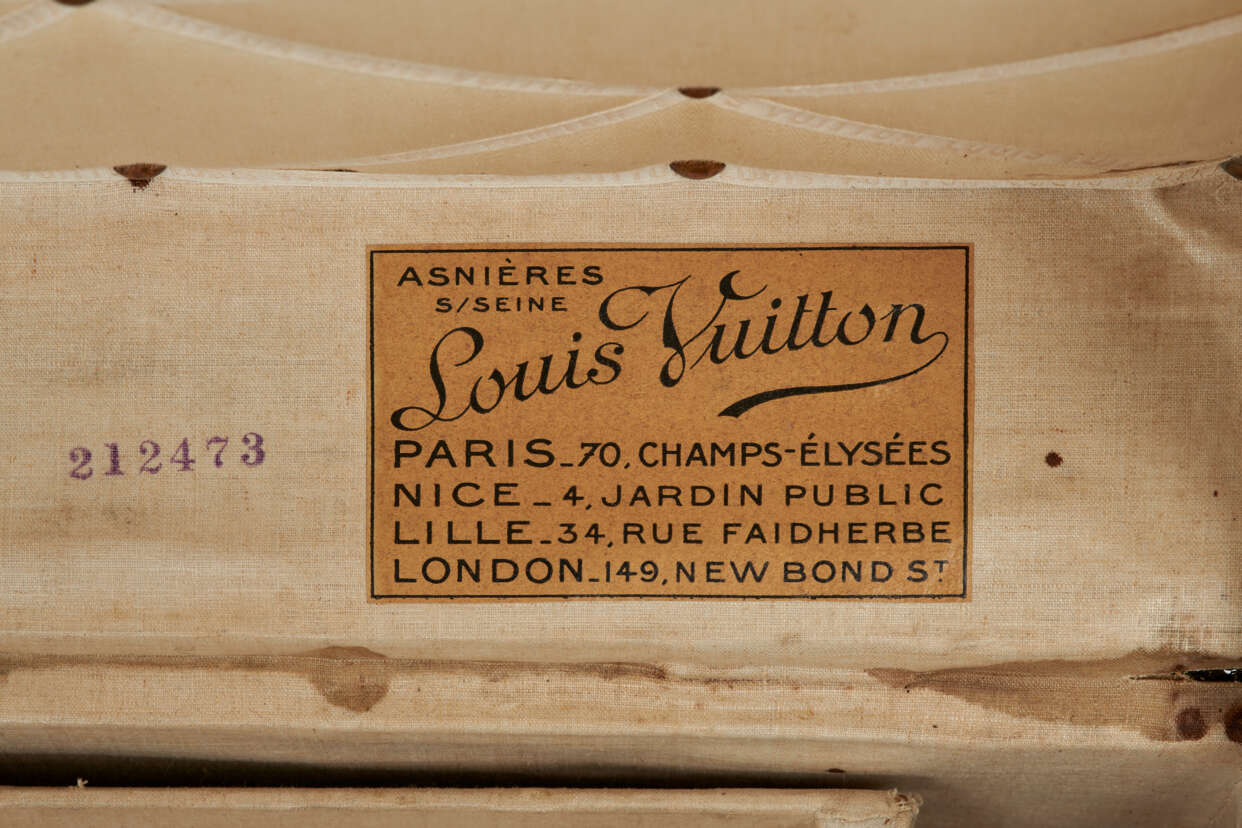 ASNIÈRES
S/SEINE
Louis Vuitton
212473
PARIS_70, CHAMPS-ÉLYSÉES
NICE_4, JARDIN PUBLIC
LILLE_34, RUE FAIDHERBE
LONDON_149, NEW BOND ST